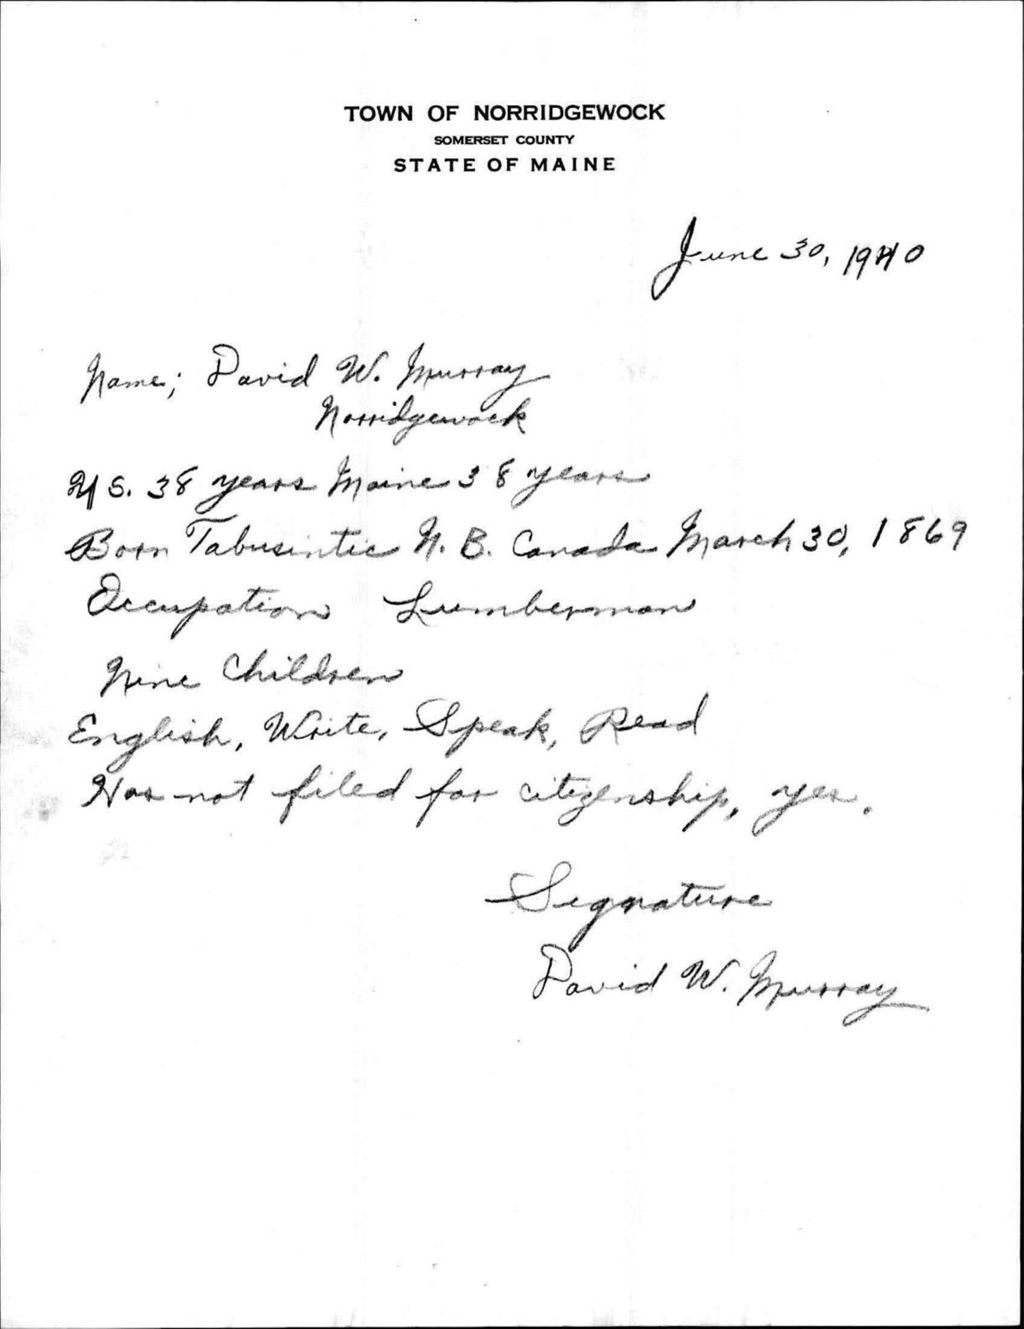 TOWN OF NORRIDGEWOCK
SOMERSET COUNTY
STATE OF MAINE
June 30, 1940
Name; David W. Murray
Norridgewock
U S. 38 years Maine 38 years
Born Tabusintic N. B. Canada March 30, 1869
Occupation Lumberman
Nine Children
English, Write, Speak, Read
Has not filed for citizenship, yes.
Signature
David W. Murray